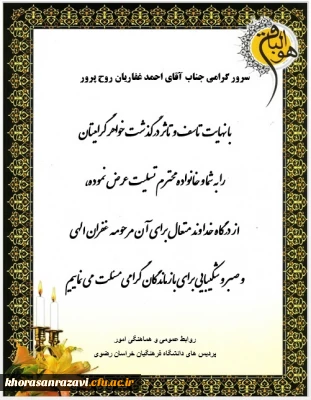 هو الباقی
سرور گرامی جناب آقای احمد غفاریان روح پرور
با نهایت تاسف و تاثر درگذشت خواهر گرامیتان
را به شما و خانواده محترم تسلیت عرض نموده،
از درگاه خداوند متعال برای آن مرحومه غفران الهی
و صبر و شکیبایی برای بازماندگان گرامی مسئلت می نماییم
روابط عمومی و هماهنگی امور
پردیس های دانشگاه فرهنگیان خراسان رضوی
khorasanrazavi.cfu.ac.ir